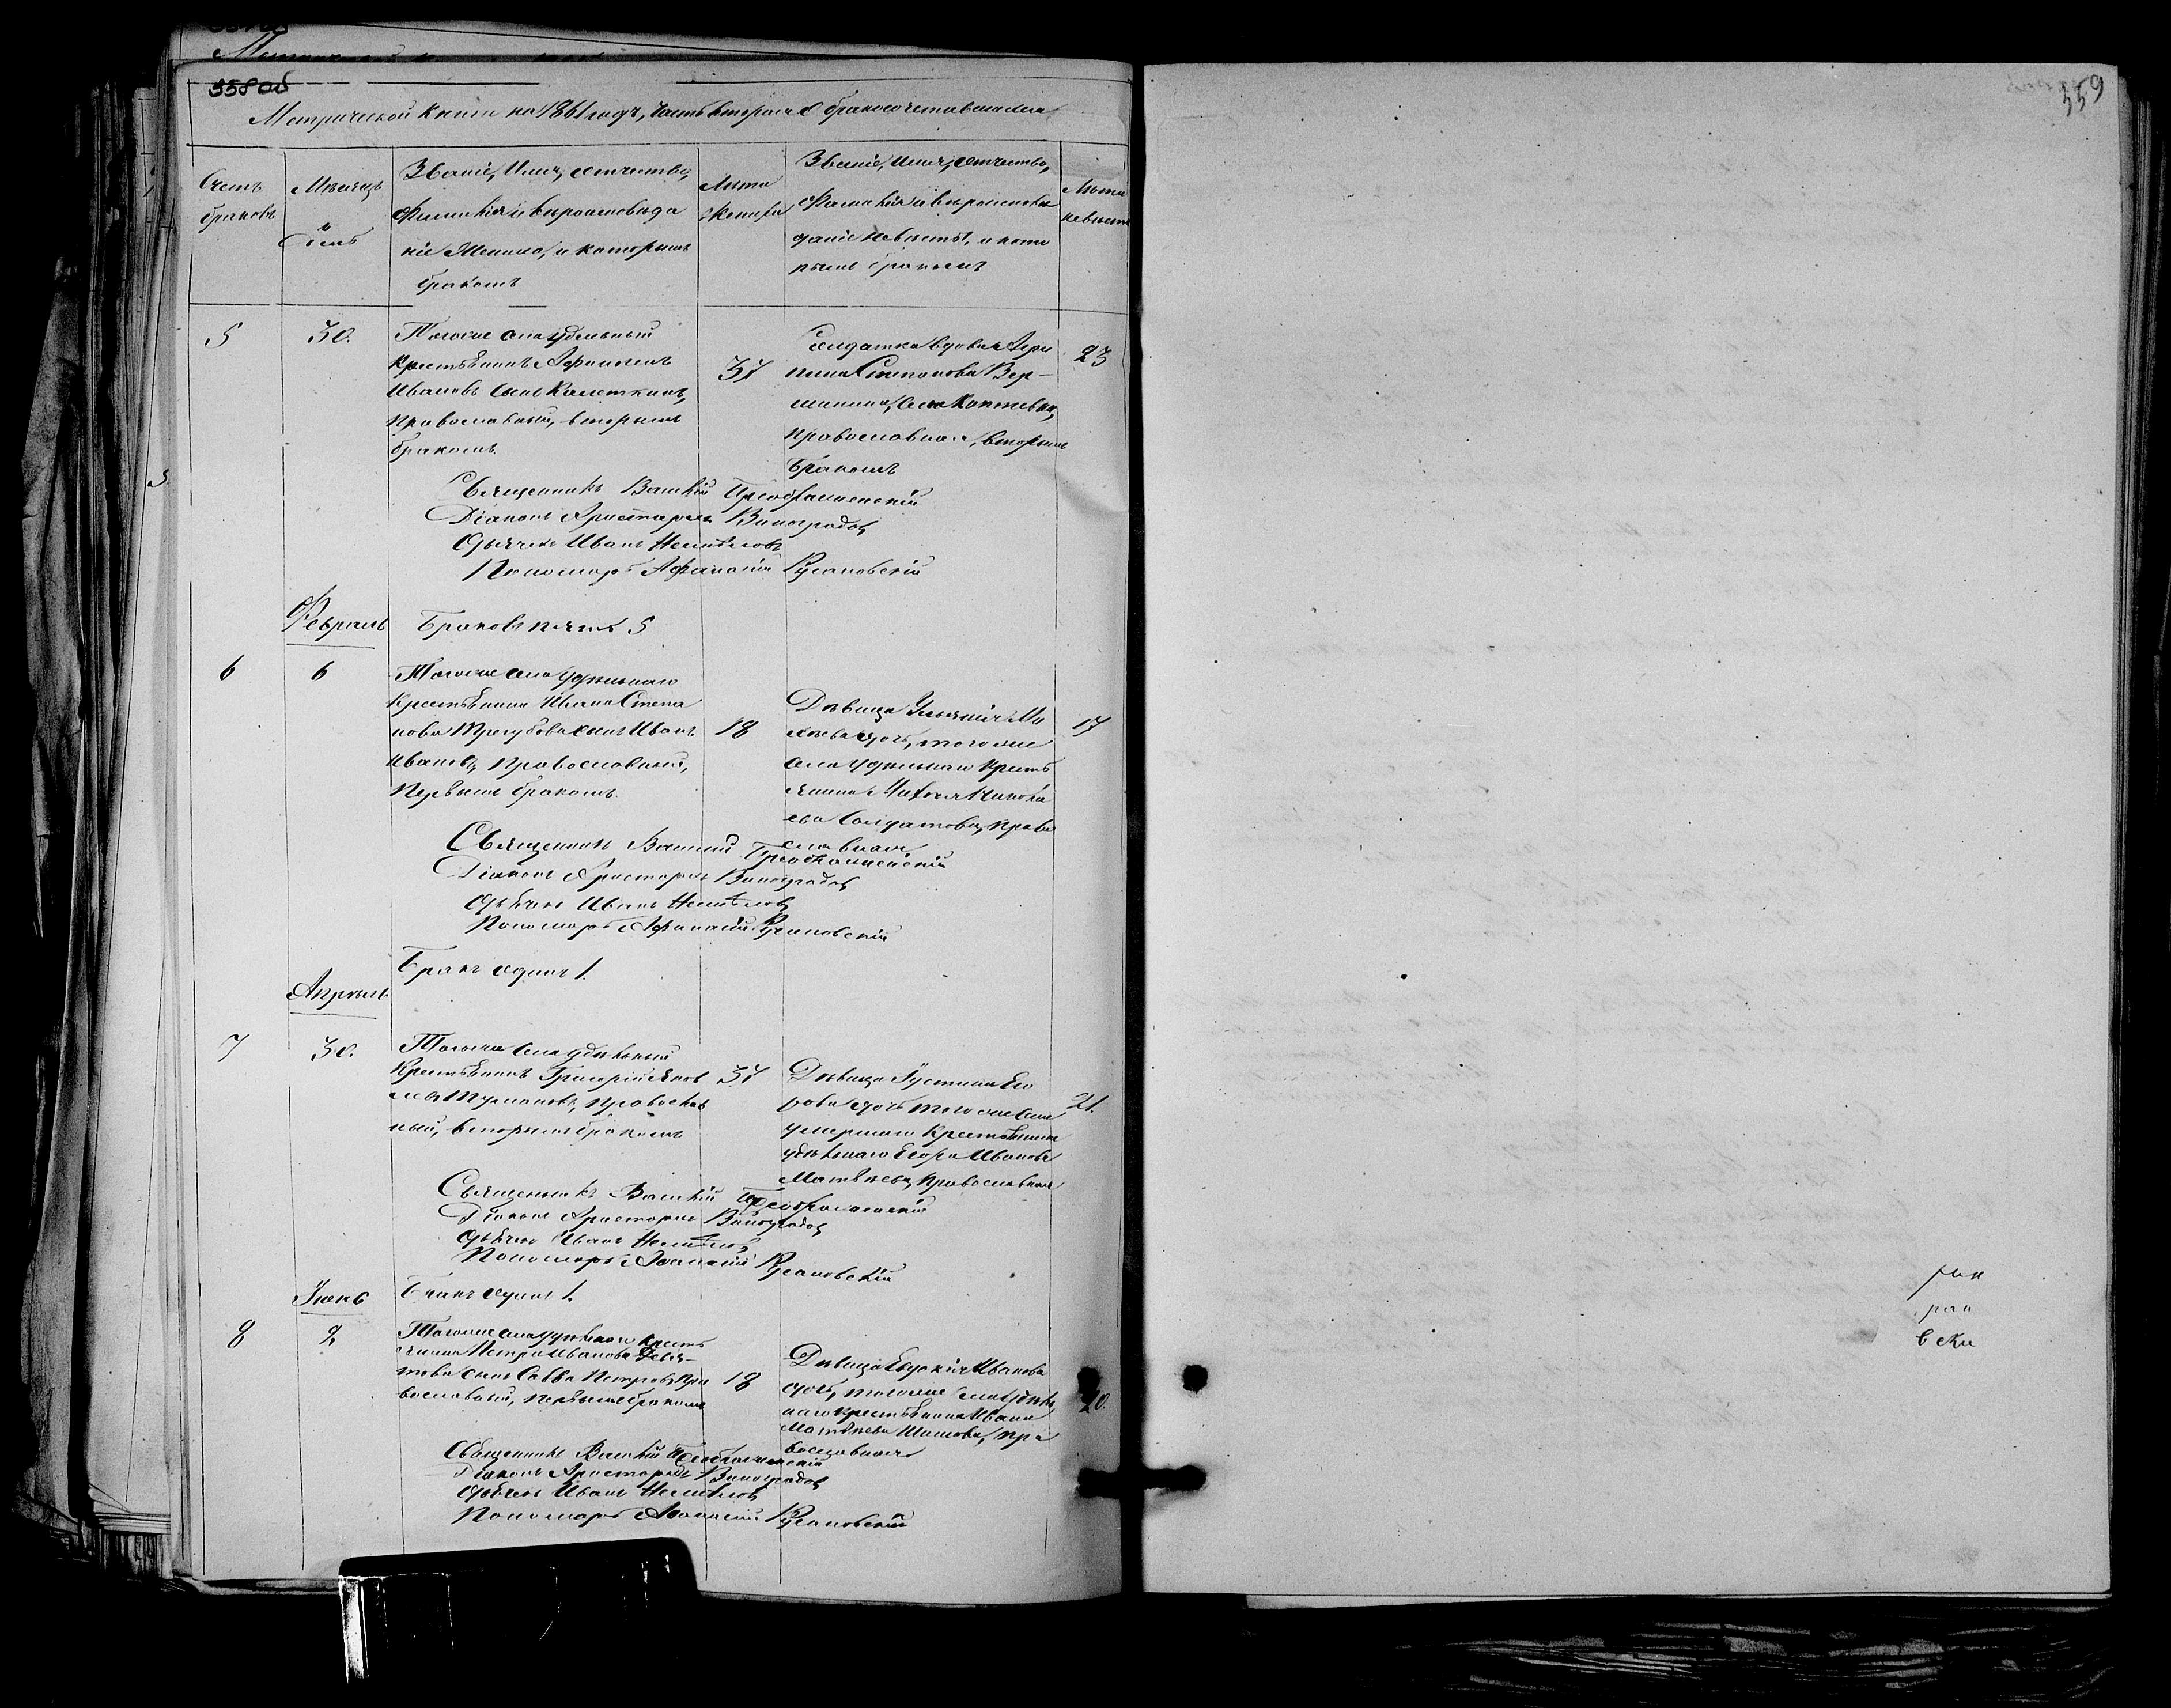 358 об
Метрической книги на 1861 годъ, часть вторая о бракосочетавшихся
Счетъ браковъ
Мѣсяцъ и день
Званіе, Имя, отчество,
Фамилія и вѣроисповѣда
ніе Жениха, и которымъ
бракомъ
Лѣта Жениха
Званіе, имя, отчество,
Фамилія и вѣроисповѣ
даніе невѣсты, и кото
рымъ бракомъ
Лѣта невѣсты
5
30.
Тогоже села удѣльный
крестьянинъ
Ивановъ сынъ
православный, вторымъ
бракомъ
37
Солдатка вдова Агри
пина Степанова Вер-
шинина, села
православная, вторымъ
бракомъ
23
Священникъ Василій Преображенскій
Діаконъ Аристархъ Виноградовъ
Дьячекъ Иванъ Немѣловъ
Пономарь Афанасій Русановскій
Февраль
Браковъ пять 5
6
6
Тогоже села удѣльнаго
крестьянина Ивана Степа
нова Трегубова сынъ Иванъ
Ивановъ, православный,
первымъ бракомъ.
18
Дѣвица Ульянія Ми
хѣева дочь, тогоже
села удѣльнаго кресть
янина Михея
ева Солдатова, право
славная
17
Священникъ Василій Преображенскій
Діаконъ Аристархъ Виноградовъ
Дьячекъ Иванъ Немѣловъ
Пономарь Афанасій Русановскій
Бракъ одинъ 1.
Апрѣль
7
30.
Тогоже села удѣльный
крестьянинъ Григорій Яков
левъ Тумановъ, православ
ный, вторымъ бракомъ
37
Дѣвица Устинья Его
рова дочь тогоже села
умершаго крестьянина
удѣльнаго Егора Иванова
Матвѣева, православная
21.
Священникъ Василій Преображенскій
Діаконъ Аристархъ Виноградовъ
Дьячекъ Иванъ Немѣловъ
Пономарь Афанасій Русановскій
Бракъ одинъ 1.
Іюнь
8
2
Тогоже села удѣльнаго кресть
янина Петра Иванова Девя-
това сынъ Савва Петровъ, пра
вославный, первымъ бракомъ
18
Дѣвица Евдокія Иванова
дочь, тогоже села удѣль
наго крестьянина Ивана
Матвѣева Шишова, пра
вославная
20.
Священникъ Василій Преображенскій
Діаконъ Аристархъ Виноградовъ
Дьячекъ Иванъ Немѣловъ
Пономарь Афанасій Русановскій
359